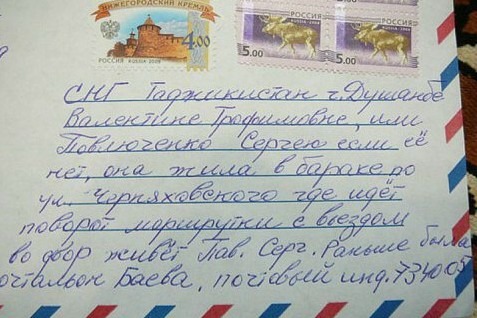 НИЖЕГОРОДСКИЙ КРЕМЛЬ
4.00
РОССИЯ RUSSIA 2009
РОССИЯ
5.00
РОССИЯ
5.00
СНГ Таджикистан г. Душанбе
Валентине Трофимовне, или
Повлюченко Сергею если её
нет, она жила в бараке по
ул. Черняховского где идёт
поворот маршрутки с выездом
во двор живёт Пав. Серг. Раньше была
очтальон Баева, почтовый инд. 734005